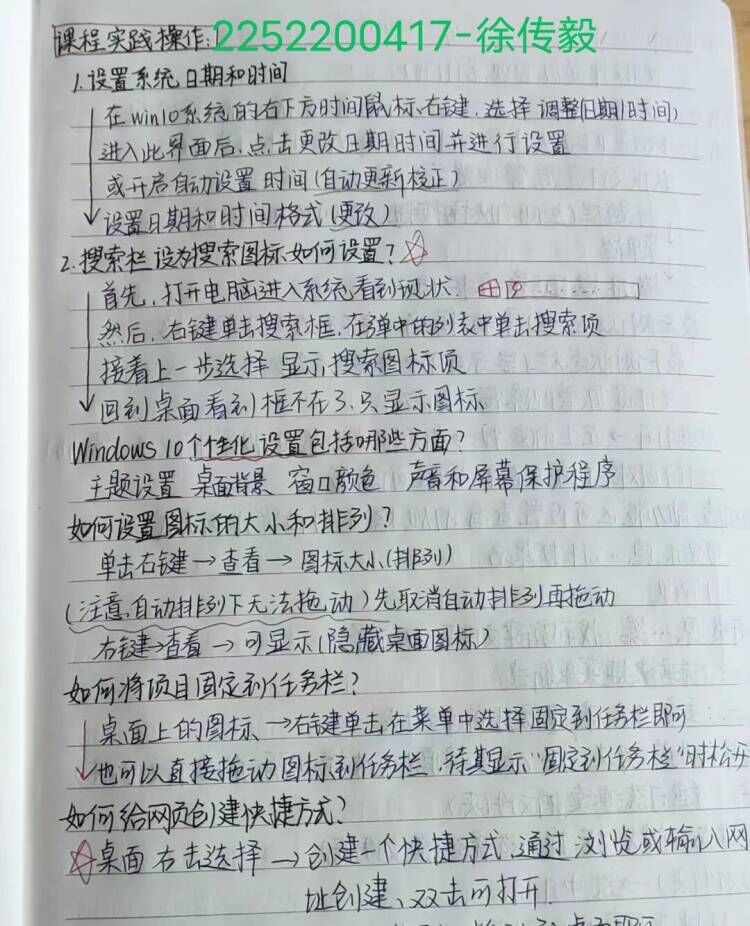 课程实践操作: 2252200417-徐传毅
1.设置系统日期和时间
在win10系统的右下方时间鼠标右键,选择 调整(日期/时间)
进入此界面后,点击更改日期时间并进行设置
或开启自动设置 时间(自动更新校正)
设置日期和时间格式(更改)
2.搜索栏设为搜索图标如何设置?
首先,打开电脑进入系统看到现状.
然后,右键单击搜索框,在弹中的列表中单击搜索项
接着上一步选择 显示搜索图标项
回到桌面看到框不在了,只显示图标
Windows 10个性化设置包括哪些方面?
主题设置 桌面背景 窗口颜色 声音和屏幕保护程序
如何设置图标的大小和排列?
单击右键→查看→图标大小(排列)
(注意,自动排列下无法拖动)先取消自动排列再拖动
右键→查看→可显示(隐藏桌面图标)
如何将项目固定到任务栏?
桌面上的图标→右键单击,在菜单中选择固定到任务栏即可
也可以直接拖动图标到任务栏,待其显示“固定到任务栏”时松开
如何给网页创建快捷方式?
桌面右击选择→创建一个快捷方式,通过浏览或输入网
址创建、双击可打开.